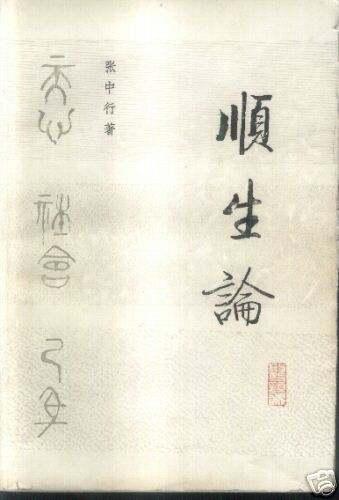 順生論
张中行著
天心 社會 己身